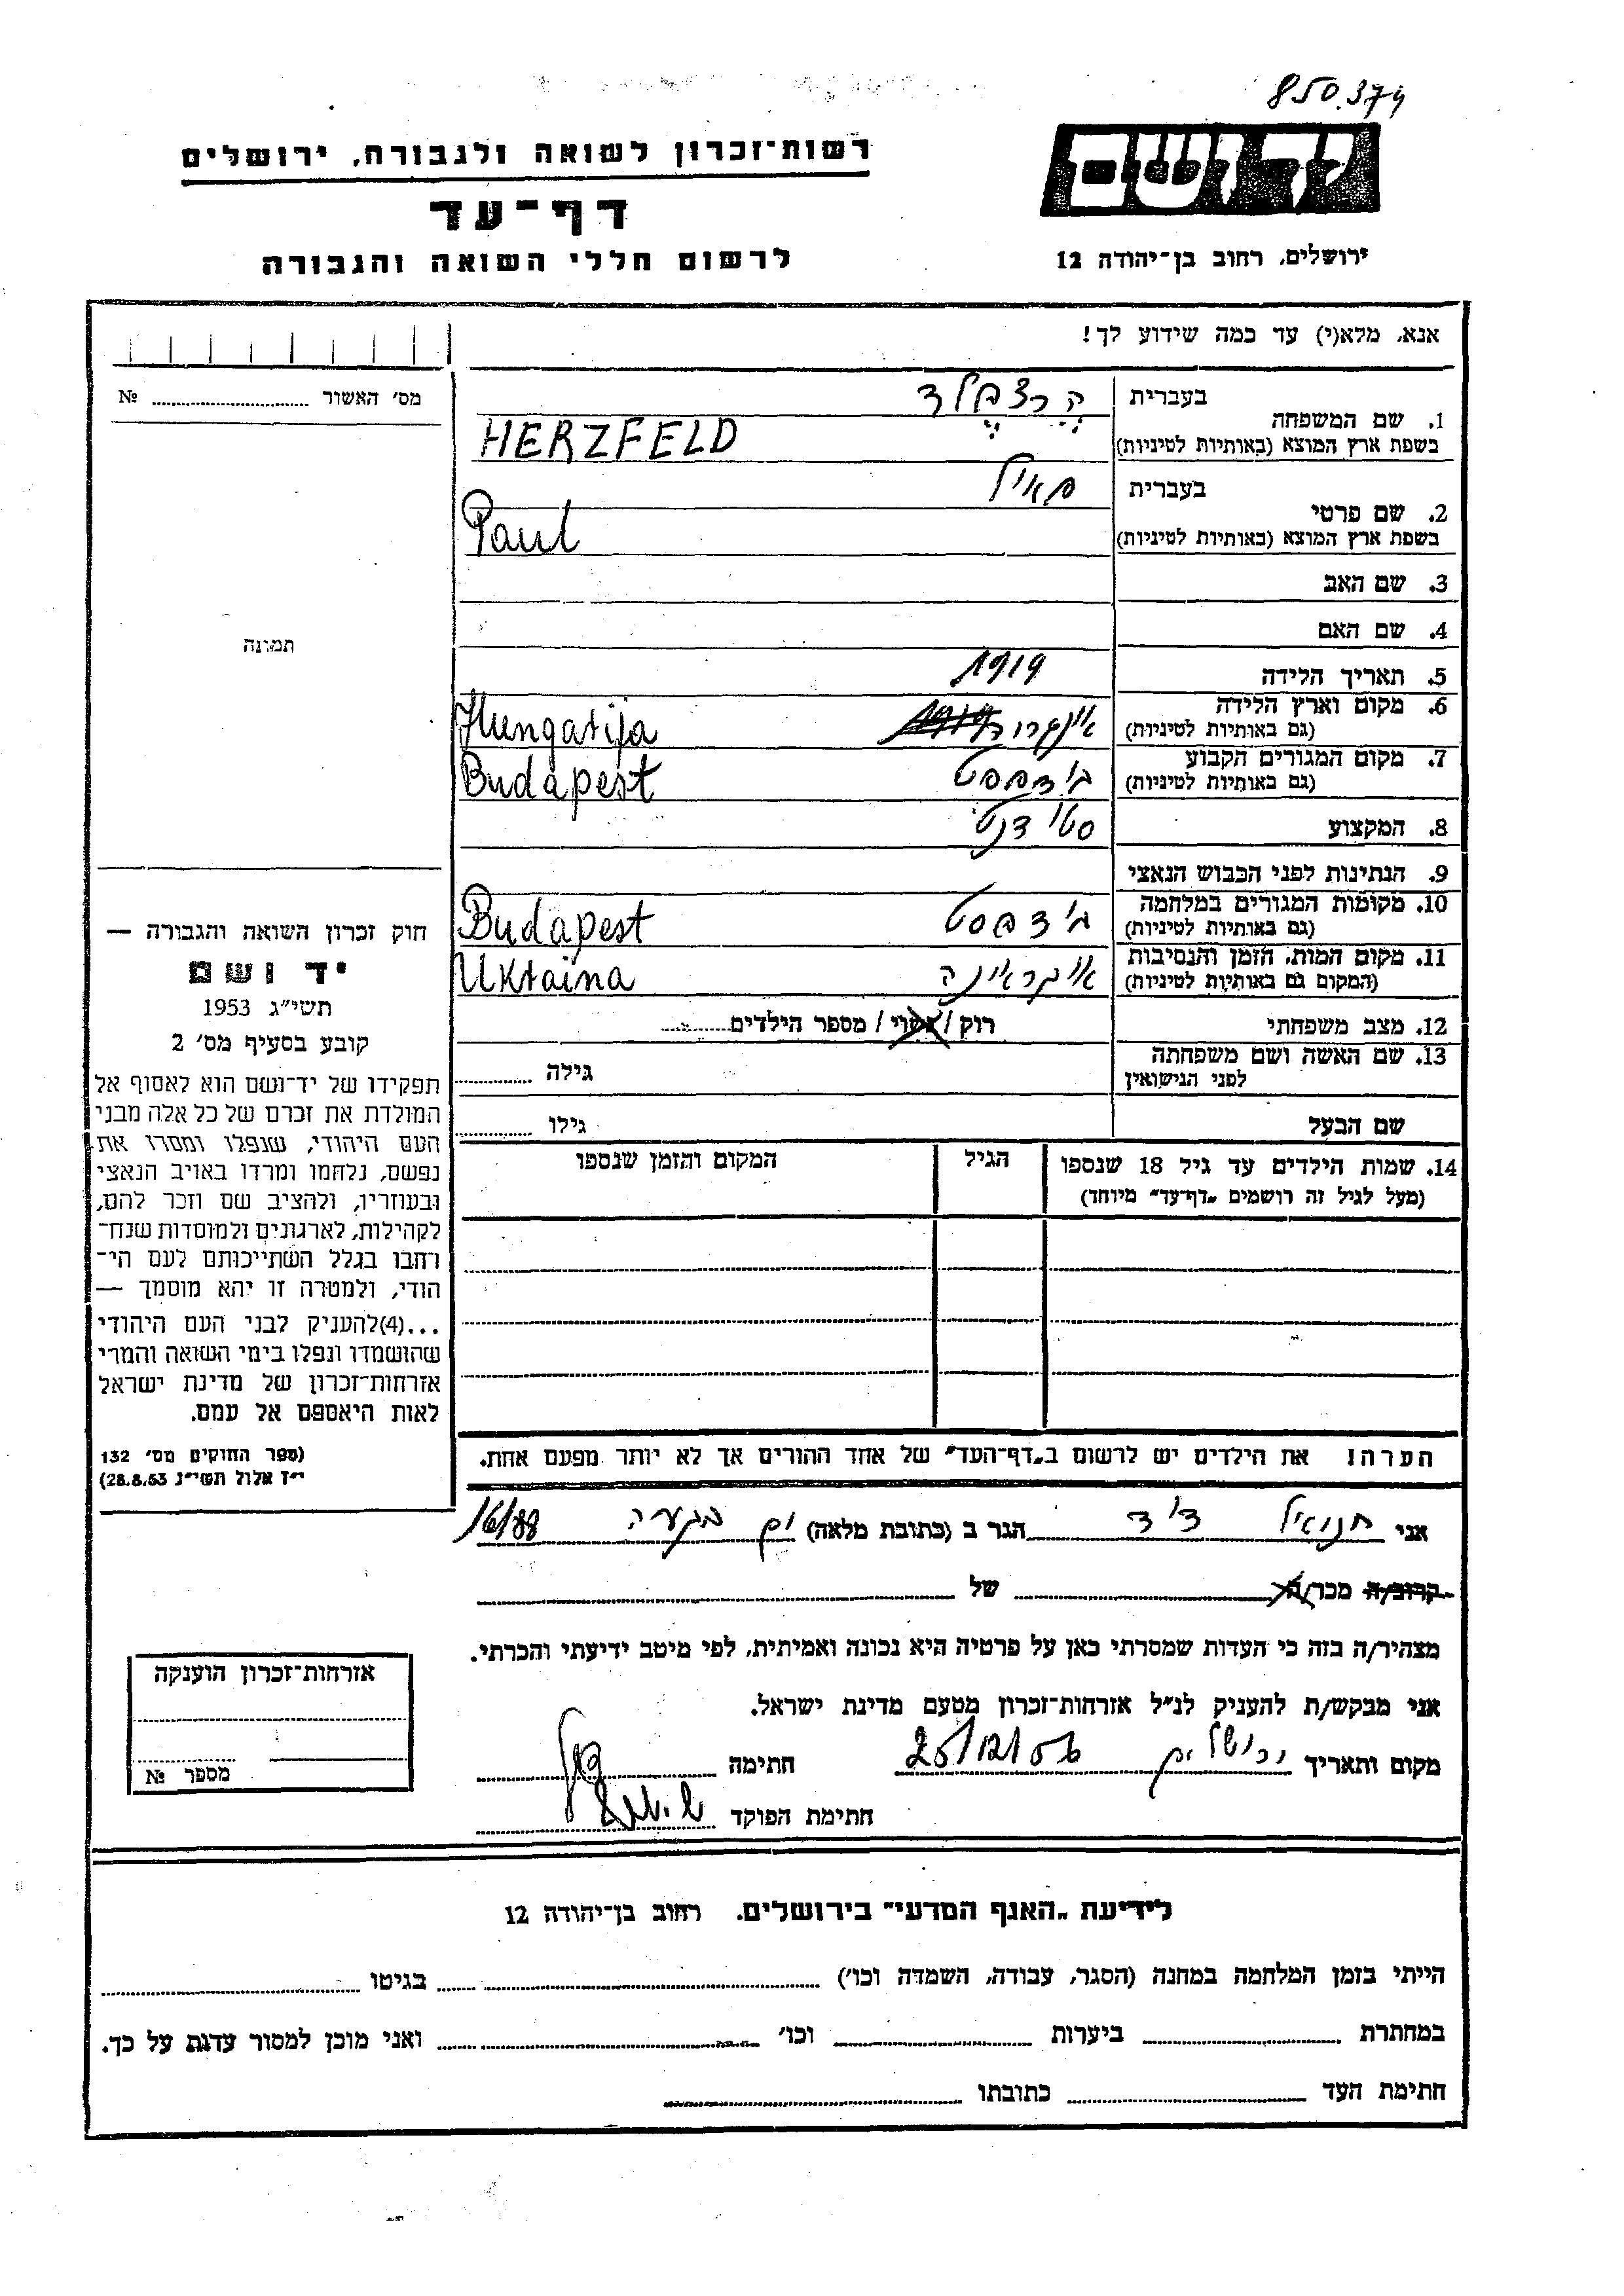 850.374
רשות־זכרון לשואה ולגבורה, ירושלים
דף־עד
לרשום חללי השואה והגבורה
יד ושם
ירושלים, רחוב בן־יהודה 12
אנא, מלא(י) עד כמה שידוע לך!
מס׳ האשור № 
1. שם המשפחה
בעברית הרצפלד
בשפת ארץ המוצא (באותיות לטיניות) HERZFELD
2. שם פרטי
בעברית פאול
בשפת ארץ המוצא (באותיות לטיניות) Paul
3. שם האב
4. שם האם
5. תאריך הלידה 1919
6. מקום וארץ הלידה
(גם באותיות לטיניות) Hungarija
7. מקום המגורים הקבוע בודפסט
(גם באותיות לטיניות) Budapest
8. המקצוע סטודנט
9. הנתינות לפני הכבוש הנאצי
10. מקומות המגורים במלחמה בודפסט
(גם באותיות לטיניות) Budapest
11. מקום המות, הזמן והנסיבות אוקראינה
(המקום גם באותיות לטיניות) Ukraina
12. מצב משפחתי רוק / נשוי / מספר הילדים
13. שם האשה ושם משפחתה
לפני הנישואין גילה
שם הבעל גילו
14. שמות הילדים עד גיל 18 שנספו הגיל המקום והזמן שנספו
(מעל לגיל זה רושמים „דף־עד״ מיוחד)
תמונה
חוק זכרון השואה והגבורה —
יד ושם
תשי״ג 1953
קובע בסעיף מס׳ 2
תפקידו של יד־ושם הוא לאסוף אל
המולדת את זכרם של כל אלה מבני
העם היהודי, שנפלו ומסרו את
נפשם, נלחמו ומרדו באויב הנאצי
ובעוזריו, ולהציב שם וזכר להם,
לקהילות, לארגונים ולמוסדות שנח־
רחבו בגלל השתייכותם לעם הי־
הודי, ולמטרה זו יהא מוסמך —
...(4)להעניק לבני העם היהודי
שהושמדו ונפלו בימי השואה והמרי
אזרחות־זכרון של מדינת ישראל
לאות היאספם אל עמם.
(ספר החוקים מס׳ 132
י״ז אלול תשי״ג 28.8.53)
הערה! את הילדים יש לרשום ב„דף־העד״ של אחד ההורים אך לא יותר מפעם אחת.
אני דוד הגר ב (כתובת מלאה) 16/88
קרוב/ה מכר/ה של
מצהיר/ה בזה כי העדות שמסרתי כאן על פרטיה היא נכונה ואמיתית, לפי מיטב ידיעתי והכרתי.
אני מבקש/ת להעניק לנ״ל אזרחות־זכרון מטעם מדינת ישראל.
מקום ותאריך ירושלים 25/12/56 חתימה
חתימת הפוקד
אזרחות־זכרון הוענקה
מספר №
לידיעת „האגף המדעי״ בירושלים, רחוב בן־יהודה 12
הייתי בזמן המלחמה במחנה (הסגר, עבודה, השמדה וכו׳) בגיטו
במחתרת ביערות וכו׳ ואני מוכן למסור עדות על כך.
חתימת העד כתובתו